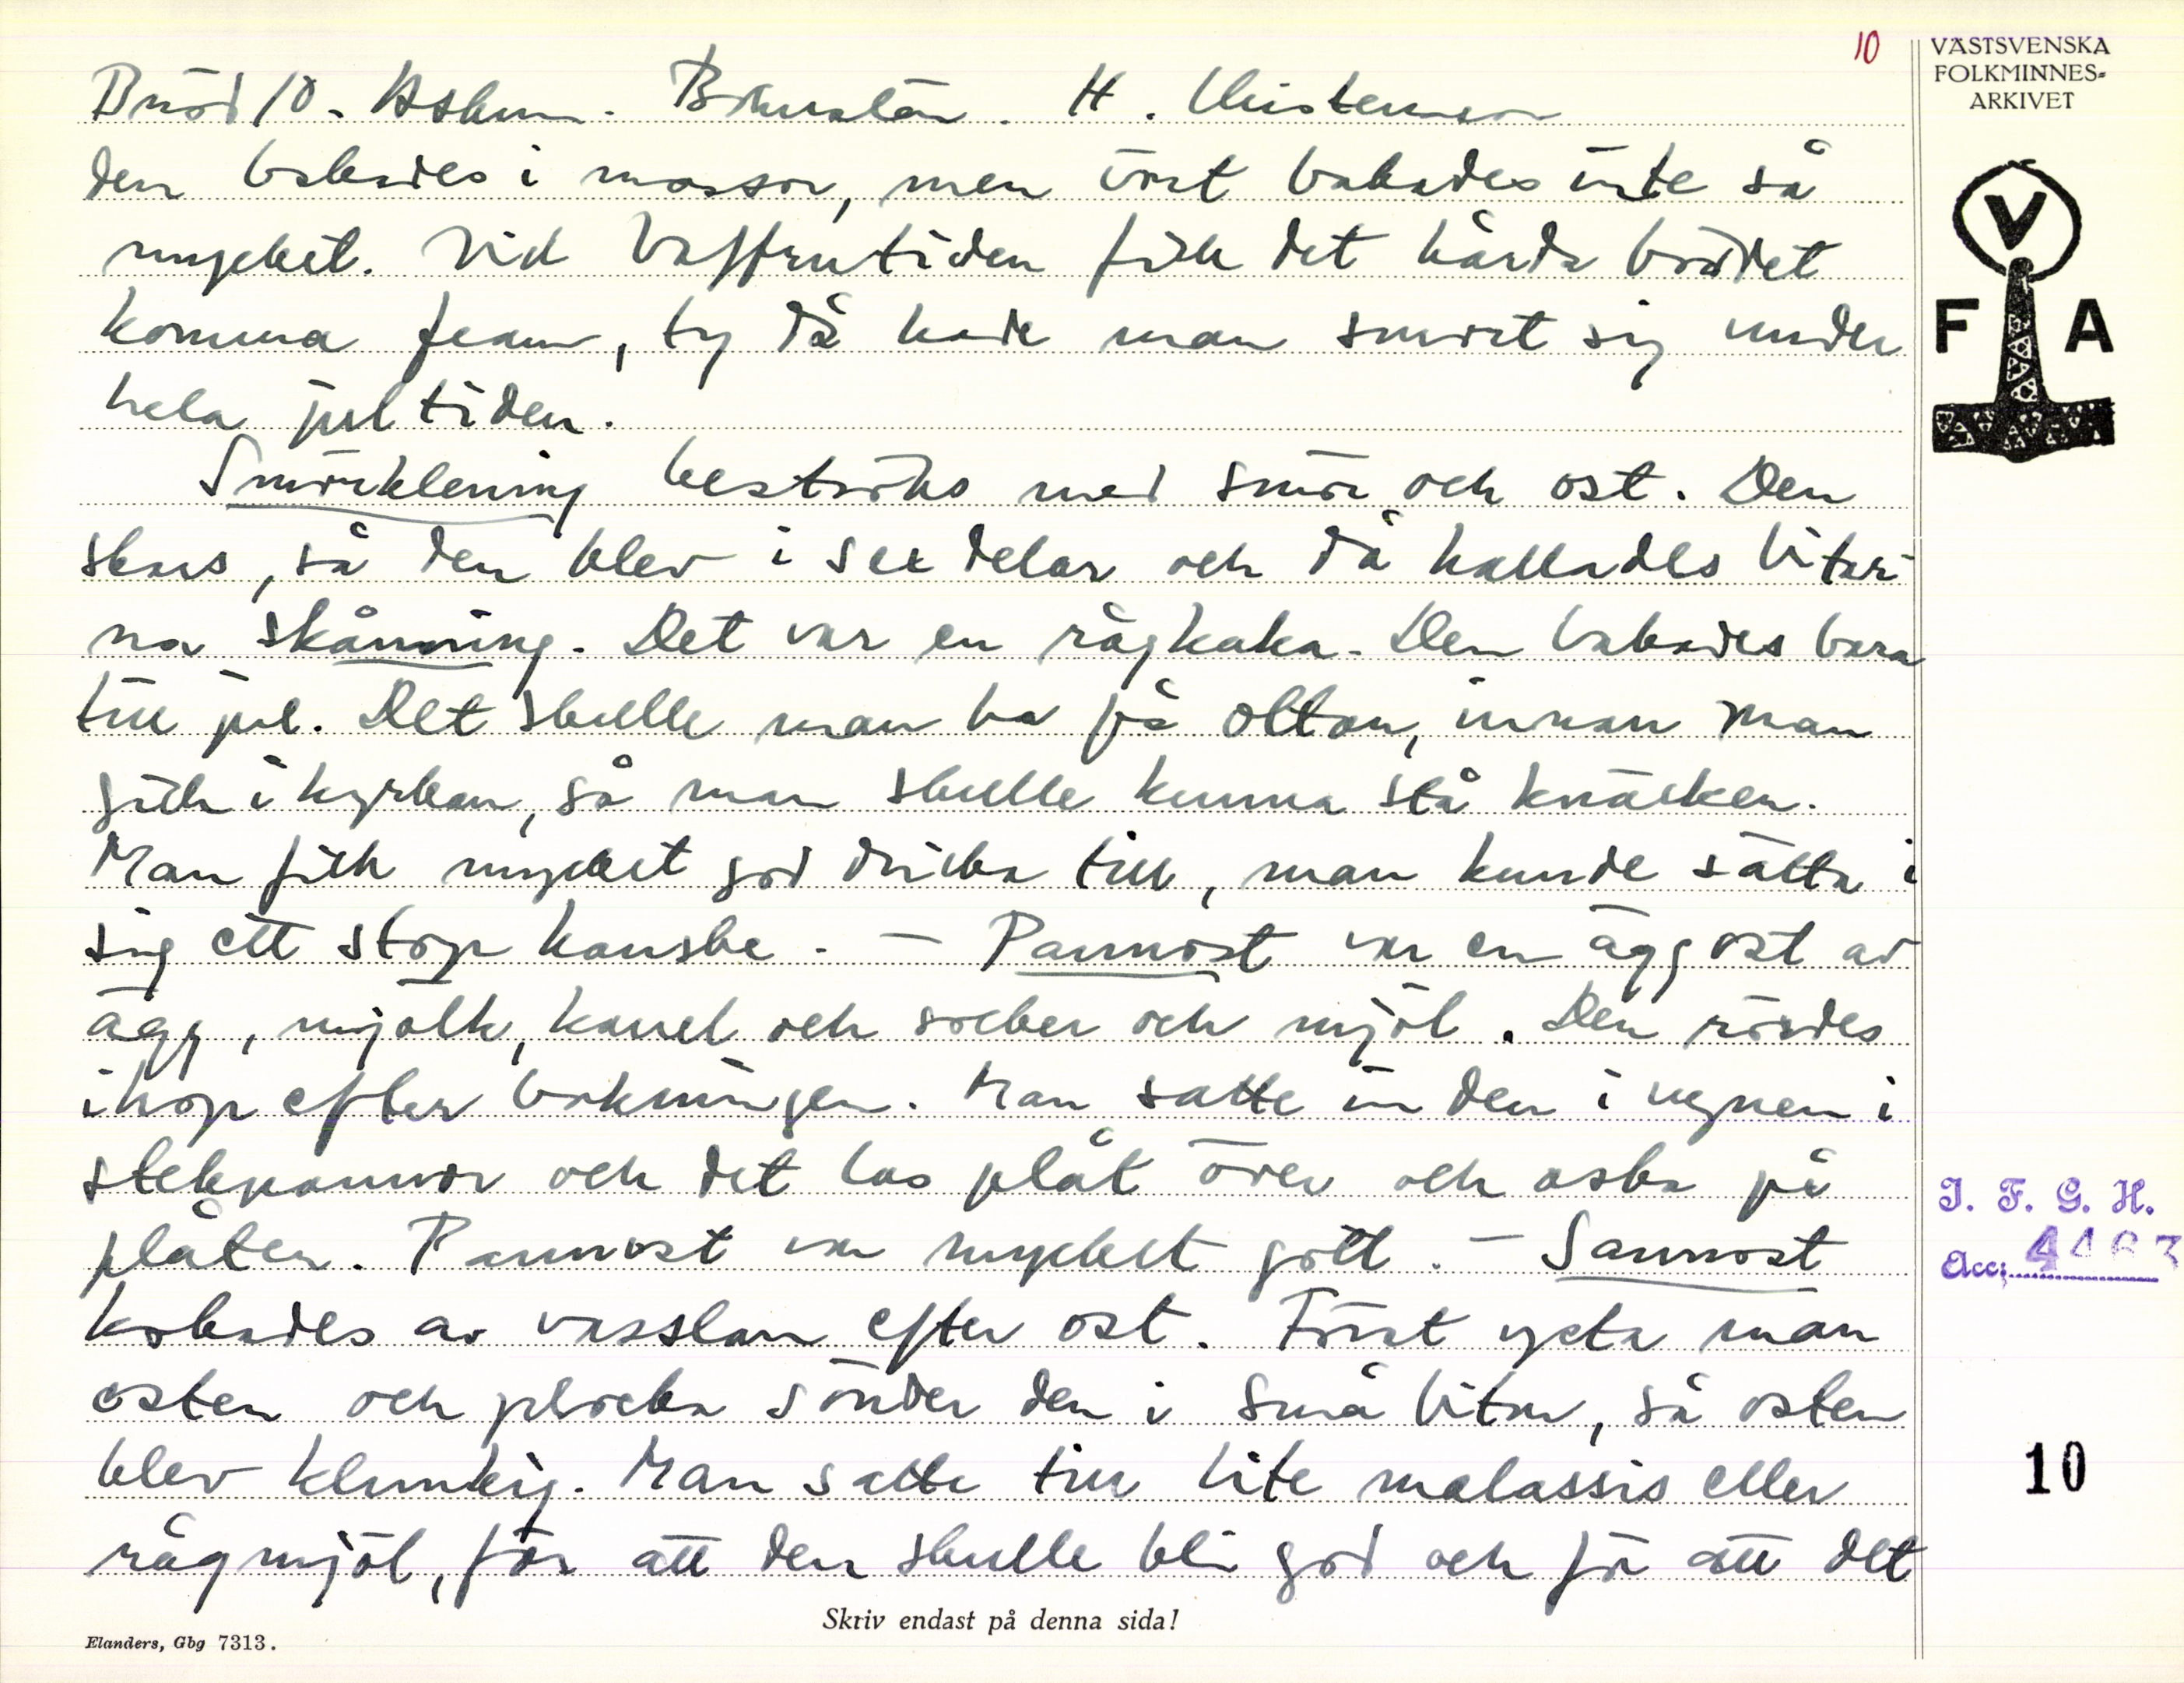 10
VÄSTSVENSKA
FOLKMINNES=
ARKIVET
Bröd 10. Askum. Bohuslän. H. Christensson
den bakades i massor, men ört bakades inte så
mycket. Vid Vaffrutiden fick det hårda brödet
komma fram, ty då hade man smort sig under
hela jultiden.
Smörklening beströks med smör och ost. Den
skars, så den blev i sex delar och då kallades bitar-
na skånning. Det var en rågkaka. Den bakades bara
till jul. Det skulle man ha på ottan, innan man
gick i kyrkan, så man skulle kunna stå knäcken.
Man fick mycket god dricka till, man kunde sätta i
sig ett stop kanske. - Pannost var en äggost av
ägg, mjölk, kanel och socker och mjöl. Den rördes
ihop efter bakningen. Man satte in den i ugnen i
stekpannor och det las plåt över och aska på
plåten. Pannost var mycket gott. - Sannost
kokades av vasslan efter ost. Först ysta man
osten och plocka sönder den i små bitar, så osten
blev klumkig. Man satte till lite malassis eller
rågmjöl, för att den skulle bli god och för att det
V
F A
I. F. G. H.
Acc: 4463
10
Skriv endast på denna sida!
Elanders, Gbg 7313.